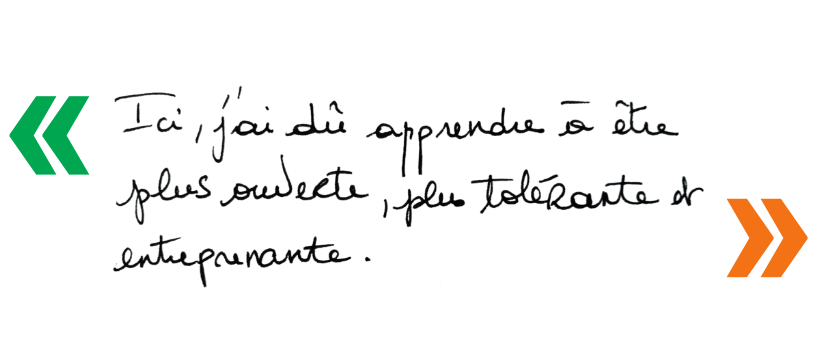 « Ici, j'ai dû apprendre à être
plus ouverte, plus tolérante et
entreprenante. »